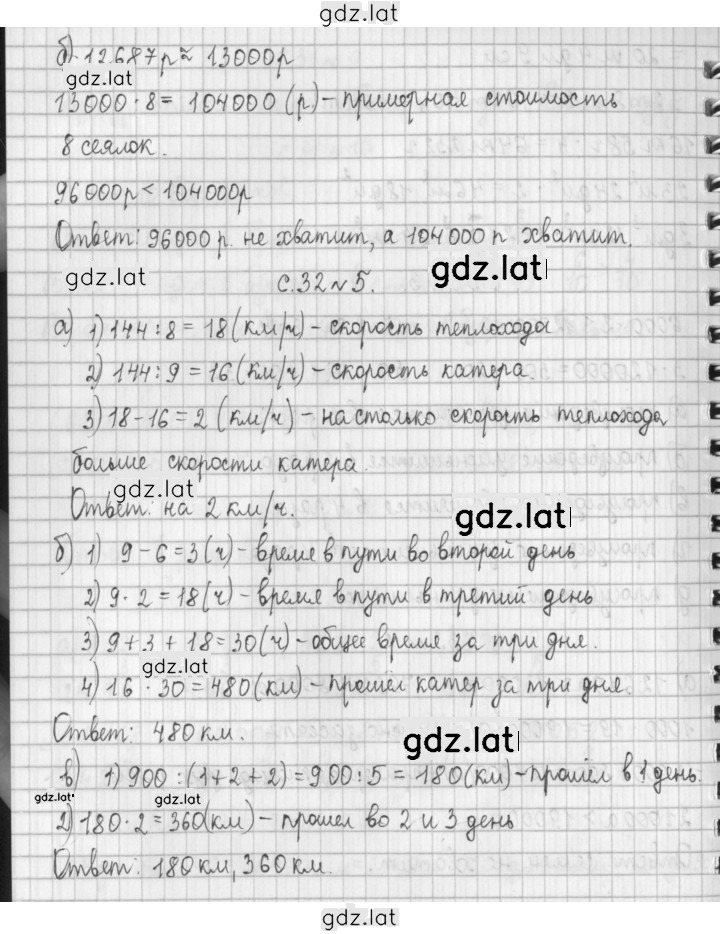 gdz.lat
б) 12687р ≈ 13000р
gdz.lat
13000 · 8 = 104000 (р) – примерная стоимость
8 сеялок.
96000р < 104000р
Ответ: 96000 р. не хватит, а 104000 р хватит.
gdz.lat с.32 №5. gdz.lat
а) 1) 144 : 8 = 18 (км/ч) – скорость теплохода
2) 144 : 9 = 16 (км/ч) – скорость катера
3) 18 – 16 = 2 (км/ч) – настолько скорость теплохода
больше скорости катера.
gdz.lat
Ответ: на 2 км/ч.
gdz.lat
б) 1) 9 – 6 = 3 (ч) – время в пути во второй день
2) 9 · 2 = 18 (ч) – время в пути в третий день
3) 9 + 3 + 18 = 30 (ч) – общее время за три дня.
gdz.lat
4) 16 · 30 = 480 (км) – прошёл катер за три дня.
Ответ: 480 км.
gdz.lat
в) 1) 900 : (1 + 2 + 2) = 900 : 5 = 180 (км) – прошёл в 1 день.
gdz.lat gdz.lat
2) 180 · 2 = 360 (км) – прошел во 2 и 3 день
Ответ: 180 км, 360 км.
gdz.lat